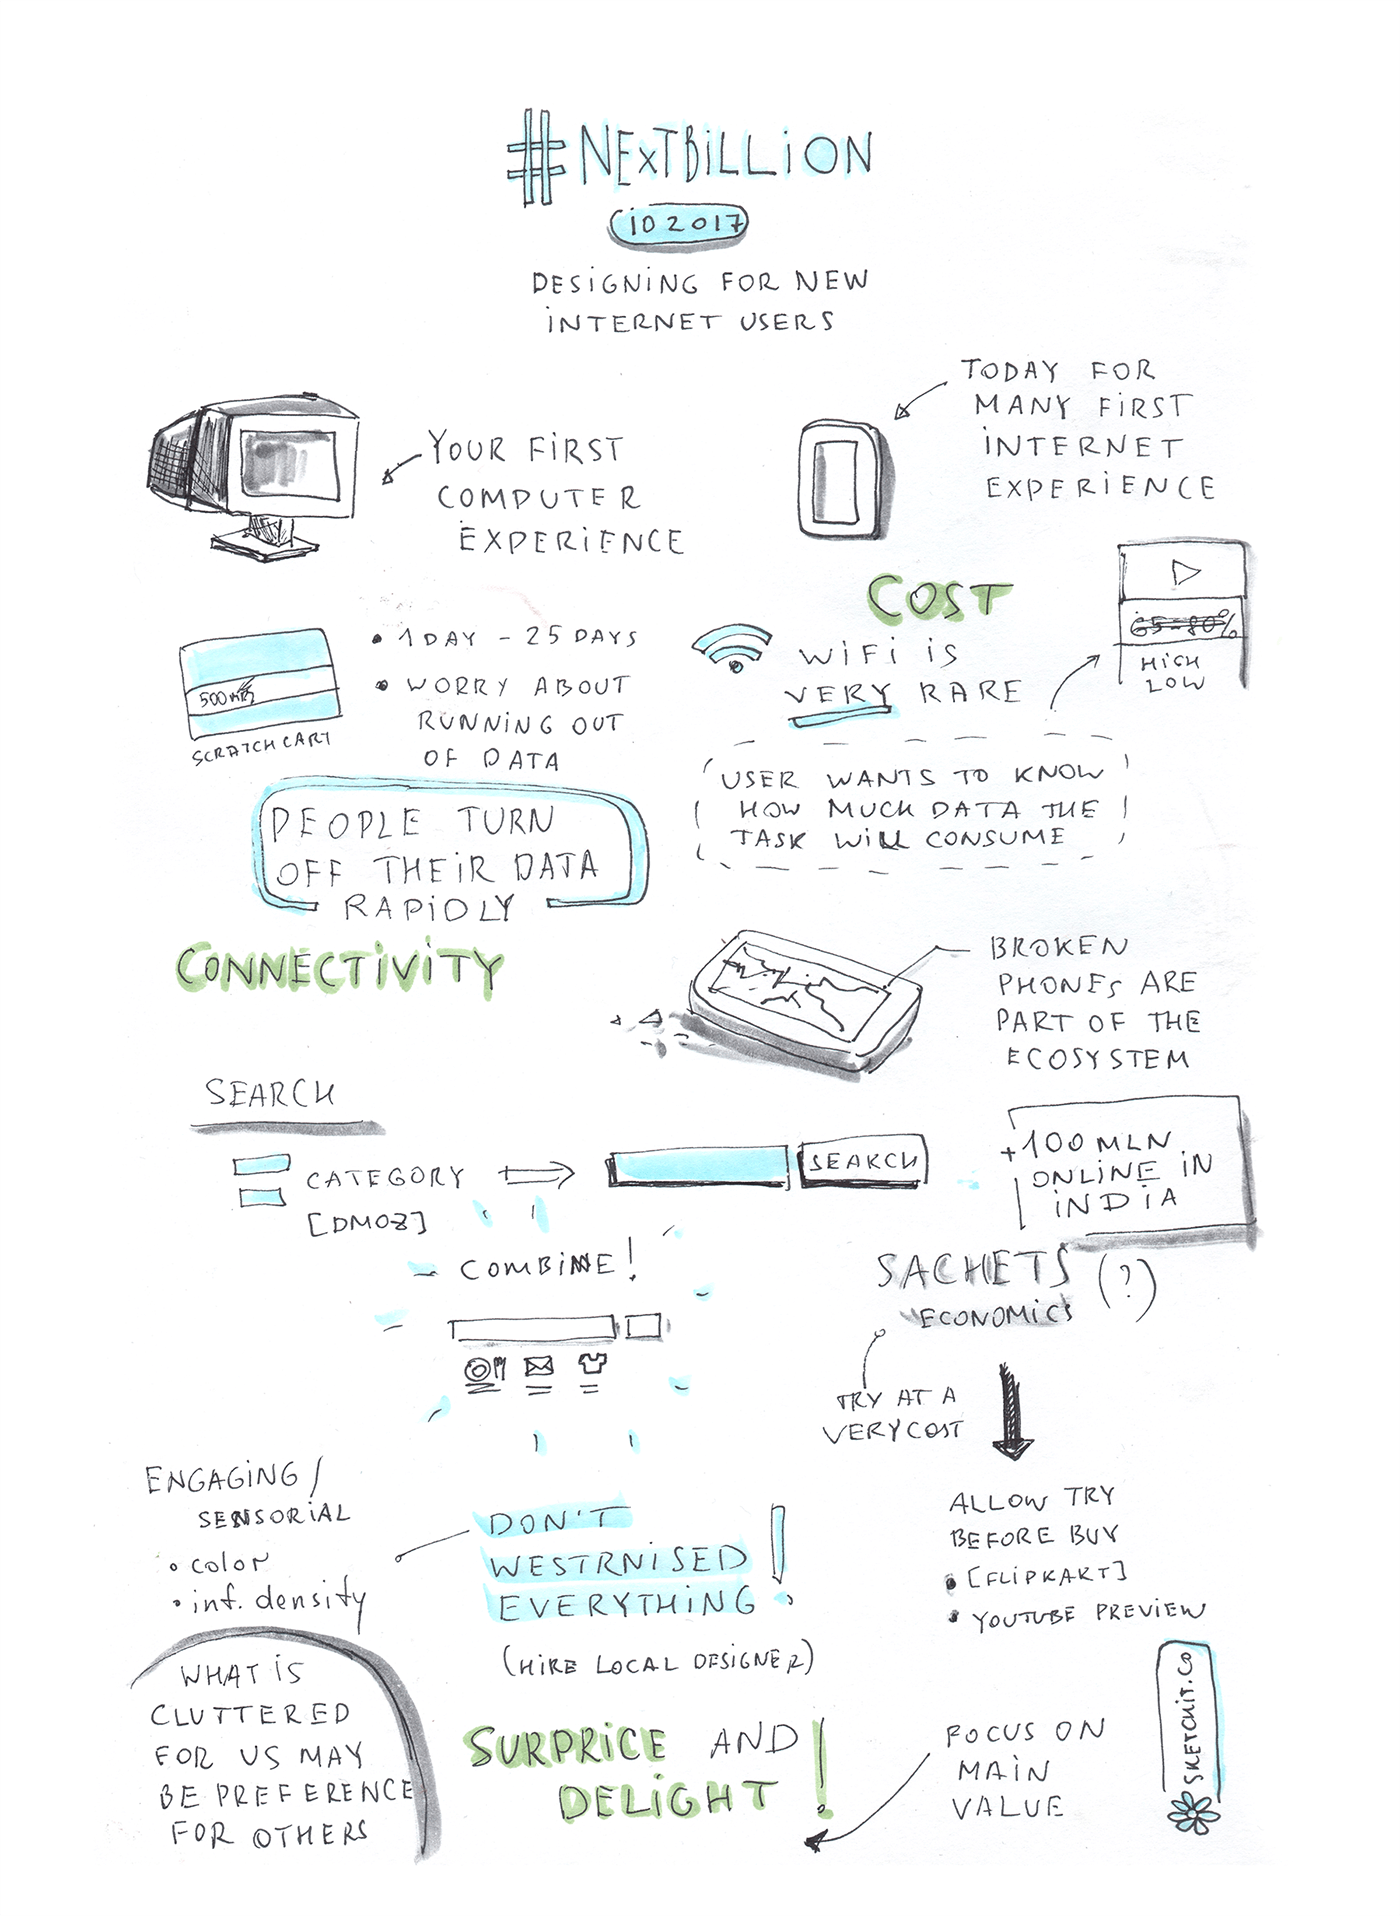 #NEXTBILLION
IO 2017
DESIGNING FOR NEW
INTERNET USERS
YOUR FIRST
COMPUTER
EXPERIENCE
TODAY FOR
MANY FIRST
INTERNET
EXPERIENCE
COST
65-80%
HIGH
LOW
500
SCRATCH CART
• 1 DAY - 25 DAYS
• WORRY ABOUT
RUNNING OUT
OF DATA
WIFI IS
VERY RARE
USER WANTS TO KNOW
HOW MUCH DATA THE
TASK WILL CONSUME
PEOPLE TURN
OFF THEIR DATA
RAPIDLY
CONNECTIVITY
BROKEN
PHONES ARE
PART OF THE
ECOSYSTEM
SEARCH
CATEGORY
[DMOZ]
SEARCH
+100 MLN
ONLINE IN
INDIA
COMBINE!
SACHETS (?)
ECONOMICS
TRY AT A
VERY COST
ALLOW TRY
BEFORE BUY
• [FLIPKART]
• YOUTUBE PREVIEW
ENGAGING/
SENSORIAL
• color
• inf. density
DON'T
WESTRNISED
EVERYTHING!
(HIRE LOCAL DESIGNER)
WHAT IS
CLUTTERED
FOR US MAY
BE PREFERENCE
FOR OTHERS
SURPRICE AND
DELIGHT!
FOCUS ON
MAIN
VALUE
SKETCHIT.CO